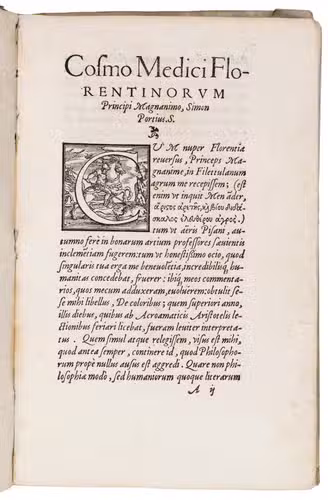 Cosmo Medici Flo-
RENTINORVM
Principi Magnanimo, Simon
Portius. S.
CVM nuper Florentia
reuersus, Princeps Ma-
gnanime, in Filettulanum
agrum me recepissem; (est
enim vt inquit Menāder,
ἄριστος
tum vt aëris Pisani, au-
tumno ferè in bonarum artium professores sæuientis
inclemẽtiam fugerem: tum vt honestissimo ocio, quod
singularis tua erga me beneuolẽtia, incredibilisq́; hu-
manitas concedebat, fruerer: ibiq́; meos commenta-
rios, quos mecum adduxeram, euoluerem: obtulit se-
se mihi libellus, De coloribus; quem superiori anno,
illis diebus, quibus ab Acroamaticis Aristotelis le-
ctionibus feriari licebat, fueram leuiter interpreta-
tus. Quem simul atque relegissem, visus est mihi,
quod antea semper, continere id, quod Philosopho-
rum propè nullus ausus est aggredi. Quare non phi-
losophiæ modò, sed humaniorum quoque literarum
A ij